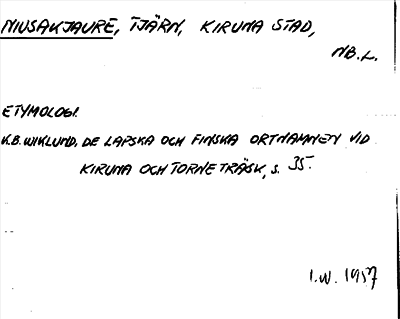 NIUSAKJAURE, TJÄRN, KIRUNA STAD,
NB.L.
ETYMOLOGI.
K.B. WIKLUND, DE LAPSKA OCH FINSKA ORTNAMNEN VID
KIRUNA OCH TORNETRÄSK, S. 35.
I.W. 1957